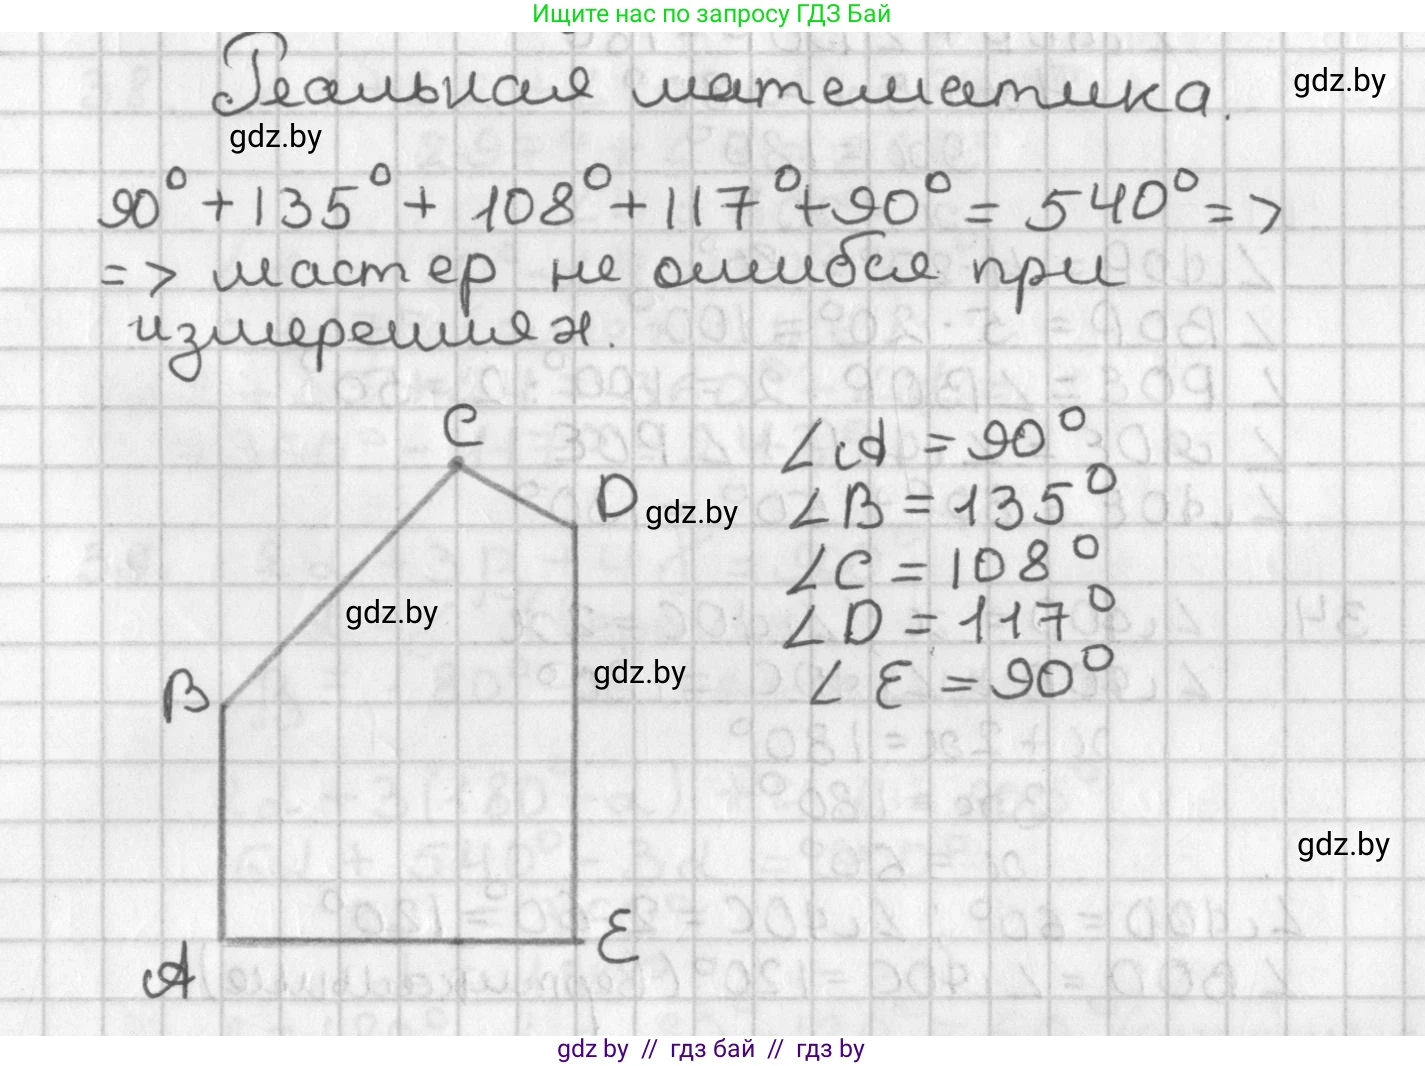 Ищите нас по запросу ГДЗ Бай
Реальная математика.
gdz.by
gdz.by
90° + 135° + 108° + 117° + 90° = 540° =>
=> мастер не ошибся при
измерениях.
C
∠A = 90°
D
gdz.by
∠B = 135°
∠C = 108°
gdz.by
∠D = 117°
B
gdz.by
∠E = 90°
gdz.by
A
E
gdz by // гдз бай // гдз by